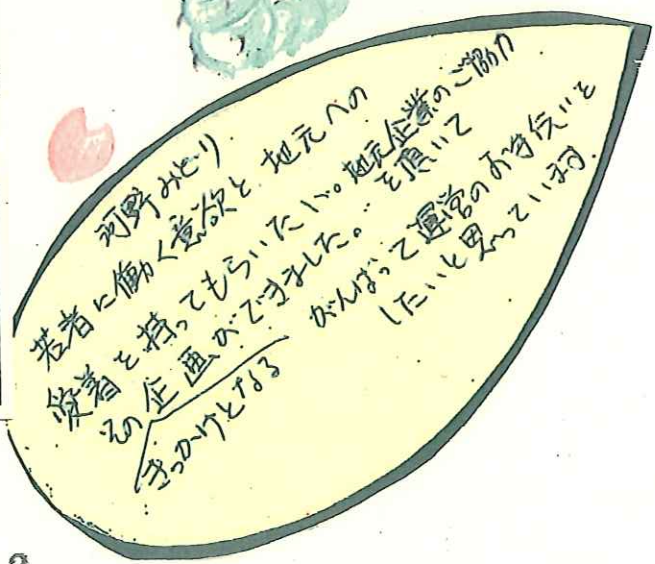 河野みどり
若者に働く意欲と地元への
愛着を持ってもらいたい。地元企業のご協力
を頂いて
その企画ができました。
きっかけとなる
がんばって運営のお手伝いを
したいと思っています。